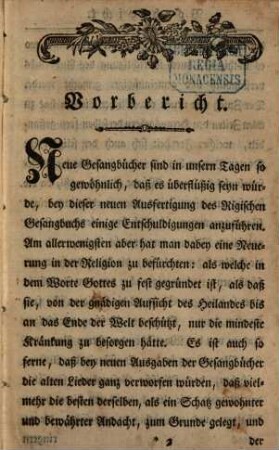 REGIA
MONACENSIS
Vorbericht.
Neue Gesangbücher sind in unsern Tagen so
gewöhnlich, daß es überflüßig seyn wür-
de, bey dieser neuen Ausfertigung des Rigischen
Gesangbuchs einige Entschuldigungen anzuführen.
Am allerwenigsten aber hat man dabey eine Neue-
rung in der Religion zu befürchten: als welche in
dem Worte Gottes zu fest gegründet ist, als daß
sie, von der gnädigen Aufsicht des Heilandes bis
an das Ende der Welt beschützt, nur die mindeste
Kränkung zu besorgen hätte. Es ist auch so
ferne, daß bey neuen Ausgaben der Gesangbücher
die alten Lieder ganz verworfen würden, daß viel-
mehr die besten derselben, als ein Schatz gewohnter
und bewährter Andacht, zum Grunde gelegt, und
* 2 der